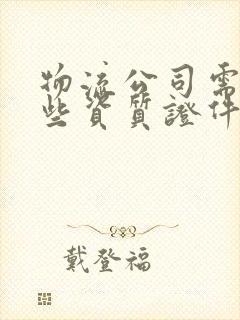 物流公司需
些資質證件
戴登福